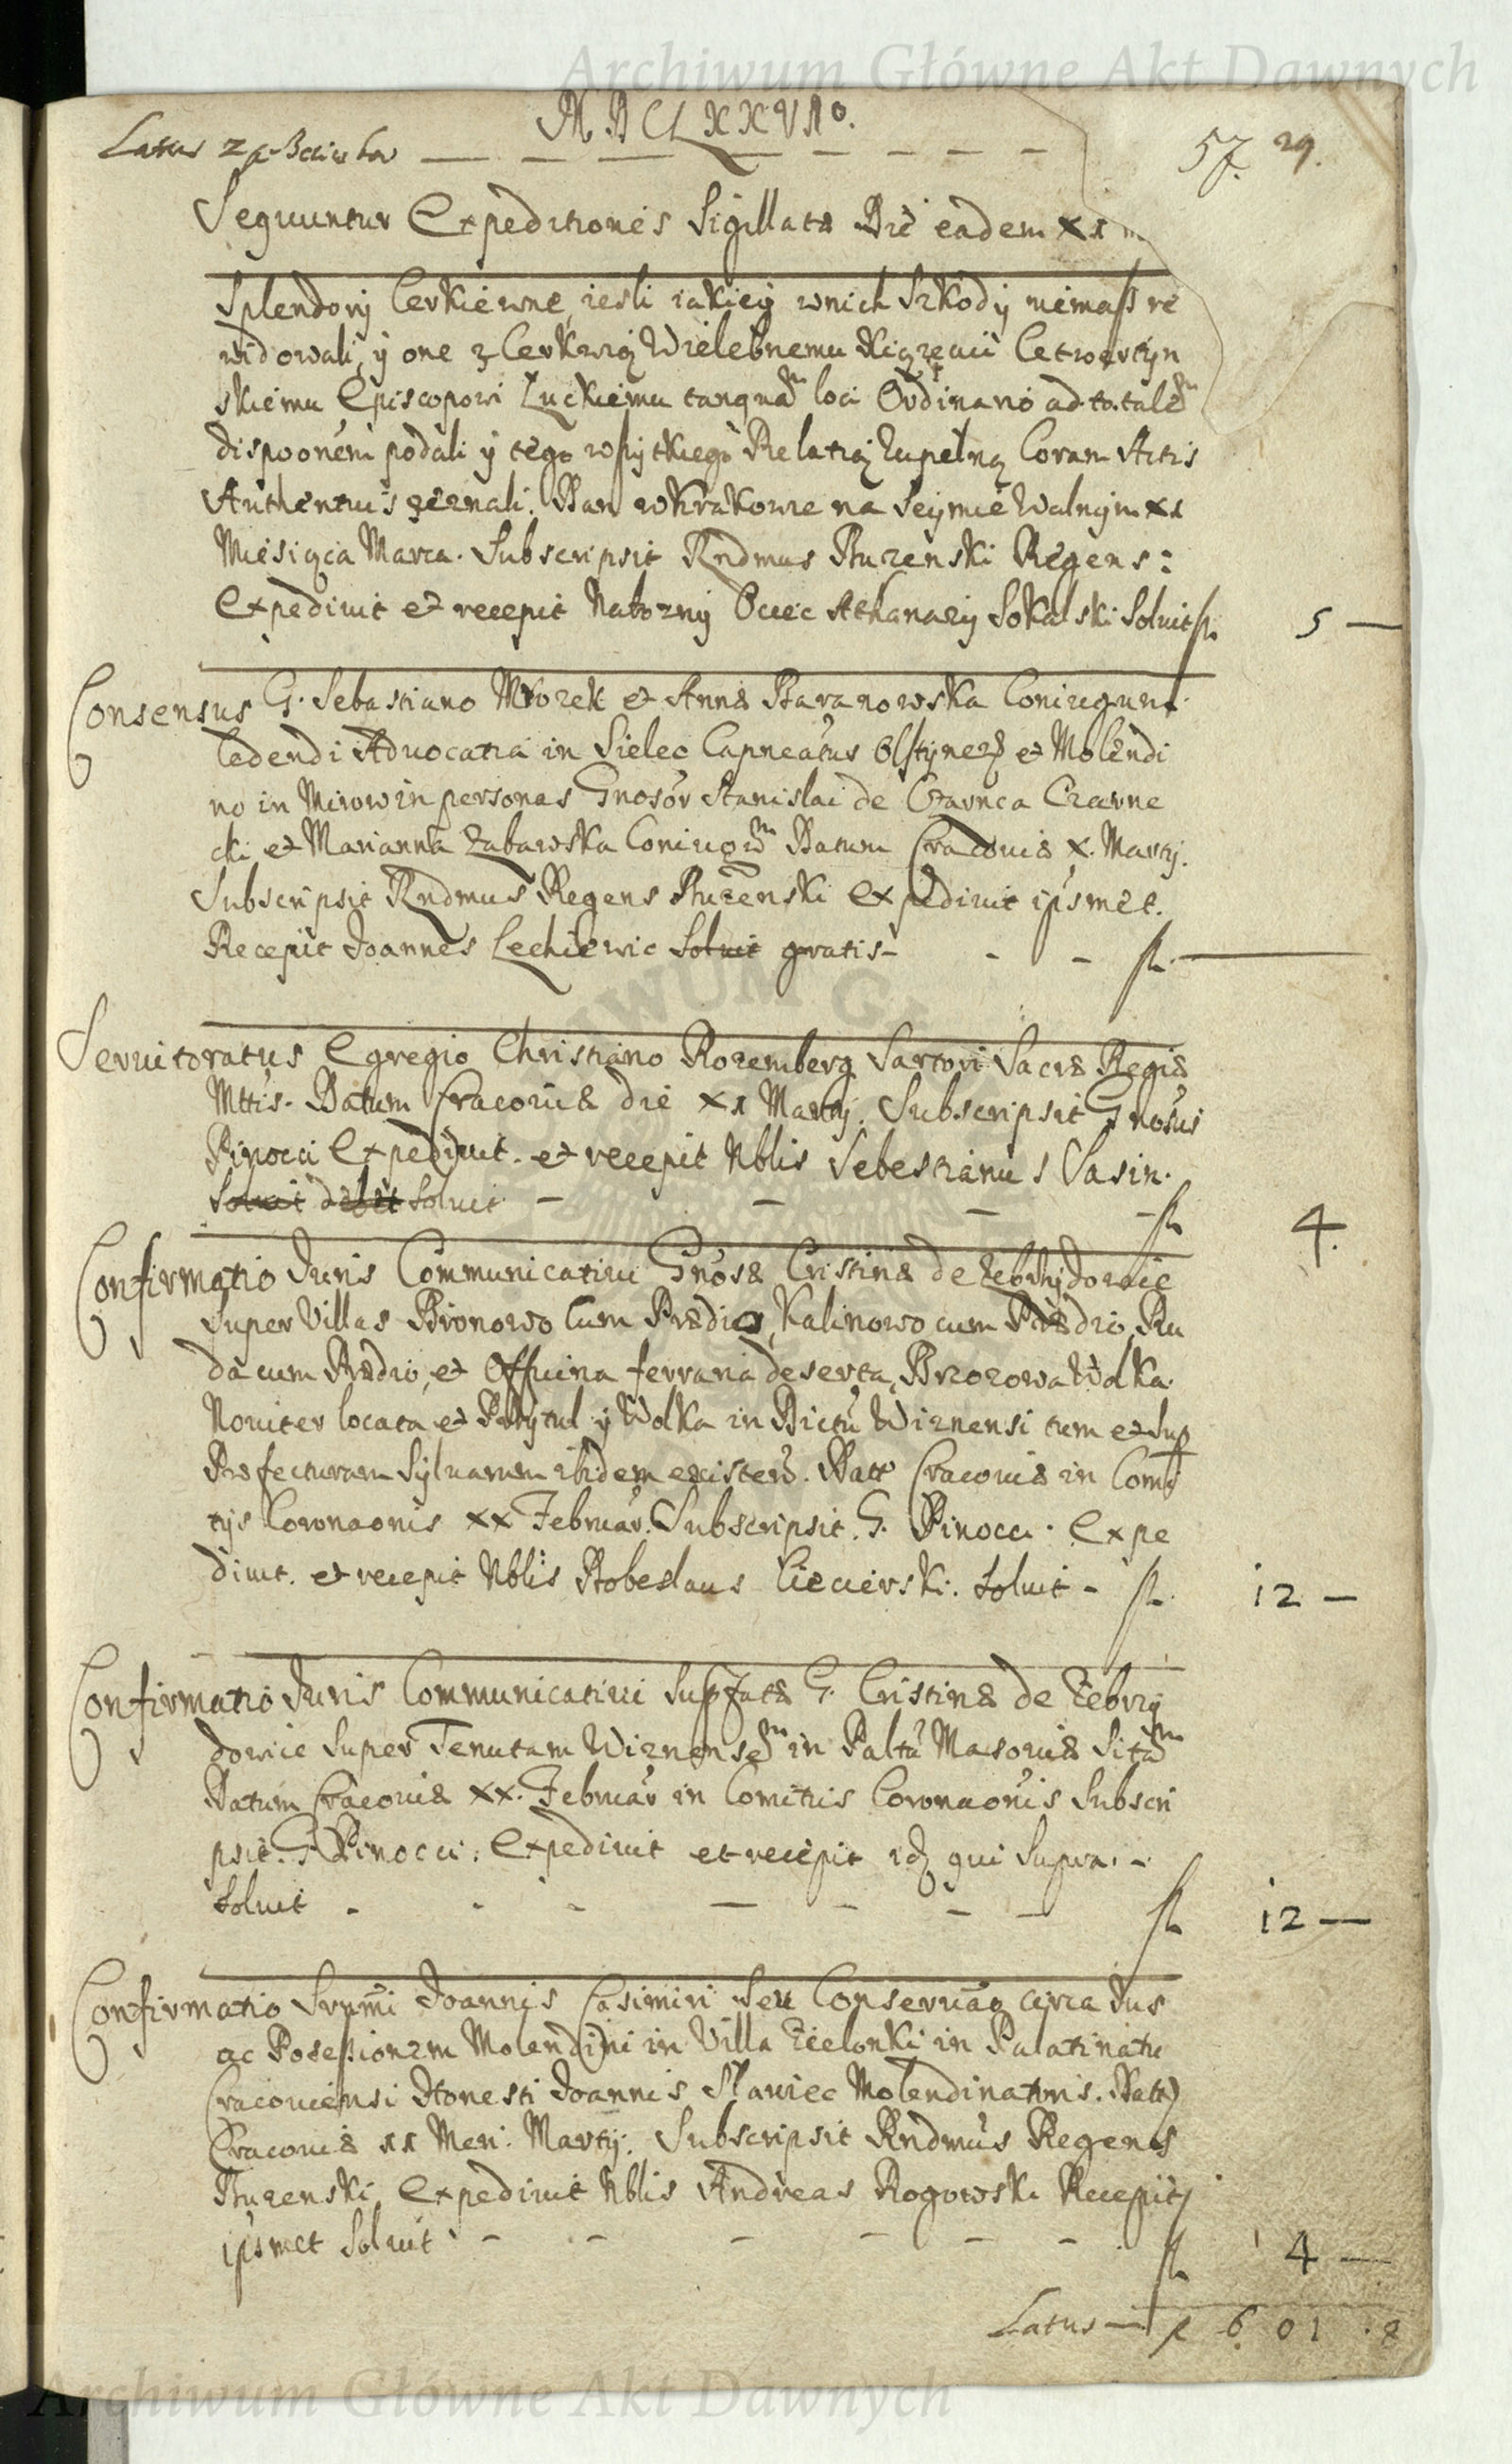 Archiwum Główne Akt Dawnych
M.DCLXXVIo.
Latus — — — — — — — — 57. 29.
Sequuntur Expeditiones Sigillatæ Die eadem XI
Splendory Cerkiewne, iesli iakiey wnich Szkody niemasz re
widowali, y one z Cerkwią Wielebnemu Xiązęciu Cetwertyn
skiemu Episcopowi Łuckiemu tanquam loci Ordinario ad totalem
dispoonem podali y tego wszytkiego Relatią zupełną Coram Actis
Authenticis zeznali. Dan w Krakowie na Seymie Walnym XI
Miesiąca Marca. Subscripsit Rndmus Buzenski Regens:
Expediuit et recepit Nabozny Ociec Athanazy Sokalski Soluit fl. 5 —
Consensus G. Sebastiano Mrozek et Annæ Baranowska Coniugum
Cedendi Aduocatia in Sielec Capneatus Olsztynen et Molendi
no in Mirow in personas Gnosor Stanislai de Czarnca Czarne
cki et Marianna Zabawska Coniugum Datum Cracouiæ X. Martij.
Subscripsit Rndmus Regens Buzenski Expediuit ipsmet.
Recepit Joannes Lechiewic Soluit gratis - - - fl. —
Seruitoratus Egregio Christiano Rozemberg Sartori Sacræ Regiæ
Mttis. Datum Cracouiæ die XI Martij. Subscripsit Gnosus
Pinocci Expediuit. et recepit Nblis Sebestianus Sasin.
Soluit debet Soluit — — — - fl 4.
Confirmatio Juris Communicatiui Gnosæ Cristinæ de Zebrzydowic
Super Villas Bronowo Cum Prædio, Kalinowo cum Prædio, Ru
da cum Prædio, et Officina ferraria deserta, Brzozowa Wolka
Nouiter locata et Przytul y Wolka in Dictu Wiznensi tum et Sup
Præfecturam Syluarum ibidem existen. Datt Cracouiæ in Comi
tijs Coronaonis XX Februar. Subscripsit. G. Pinocci. Expe
diuit. et recepit Nblis Dobeslaus Ciecierski. Soluit - fl. 12 —
Confirmatio Juris Communicatiui Supfatæ G. Cristinæ de Zebrzy
dowic Super Tenutam Wiznensem in Paltu Masouiæ Sitam
Datum Cracouiæ XX. Februar in Comitiis Coronaonis Subscri
psit. G. Pinocci. Expediuit et recepit id qui Supra. -
Soluit - - - — - - — fl 12 —
Confirmatio Srnmi Joannis Casimiri Seu Conseruao circa Jus
ac Possessionem Molendini in Villa Zielonki in Palatinatu
Cracouiensi Honesti Joannis Sławiec Molendinatoris. Datt
Cracouiæ 11 Men. Martij. Subscripsit Rndmus Regens
Buzenski, Expediuit Nblis Andreas Rogowski Recepit
ipsmet Soluit - - - - - - fl 4 —
Latus — fl 601 . 8
Archiwum Główne Akt Dawnych